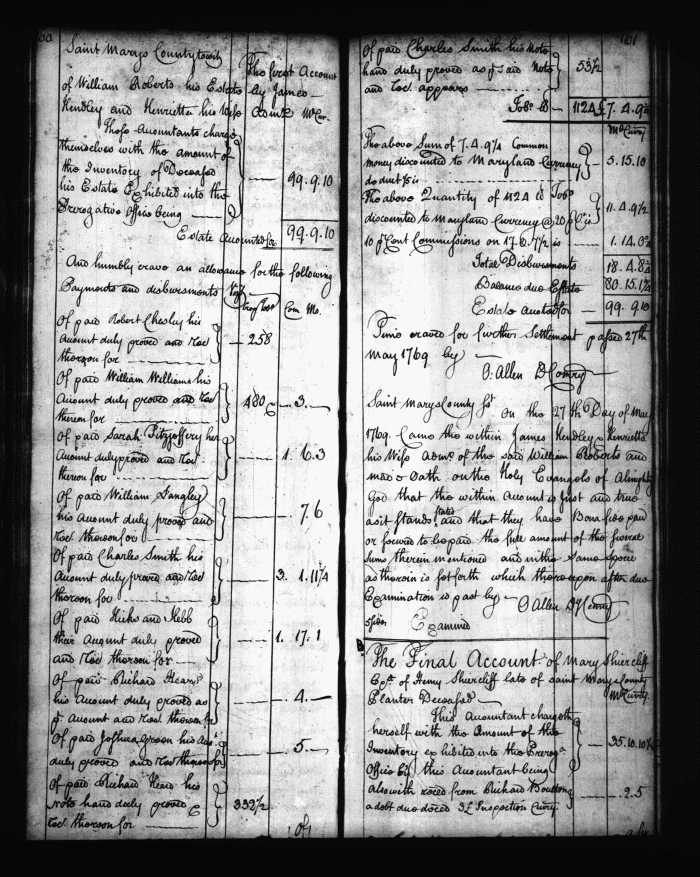 60
Saint Marys County towit
The first Account
of William Roberts his Estate by James
Hendley and Henrietta his Wife Admx McCur.
These Accountants charge
themselves with the amount of
the Inventory of Deceased
his Estate Exhibited into the
Prerogative Office being 99.9.10
Estate Accounted for 99.9.10
And humbly crave an allowance for the following
Payments and disbursments Com Mo.
Of paid Robert Chesley his
Account duly proved and Recd 258
thereon for
Of paid William Williams his
Account duly proved and Recd 480 3
thereon for
Of paid Sarah Fitzjeffery her
Account duly proved and Recd 1. 6.3
thereon for
Of paid William Langley
his Account duly proved and 7.6
Recd thereon for
Of paid Charles Smith his
Account duly proved and Recd 3. 1.11¼
thereon for
Of paid Hicks and Kebb
their Account duly proved 1. 17. 1
and Recd thereon for
Of paid Richard Heard
his Account duly proved as 4
p Account and Recd thereon for
Of paid Joshua Green his Acct 5
duly proved and Recd thereon for
Of paid Richard Heard his
Note hand duly proved & 332½
Recd thereon for
Of
161
Of paid Charles Smith his Note
hand duly proved as p said Note 53½
and Recd appears
Tobo lb 1124 £7.4.9¼
McCurry
The above Sum of 7.4.9¼ Common
money discounted to Maryland Currency 5.15.10
deduct is
The above Quantity of 1124 lb Tobo
discounted to Maryland Currency @ 20 p Ct is 11.4.9½
10 p Cent Commissions on 17.0.7½ is 1.14.0¾
Total Disbursments 18.4.8¼
Ballance due Estate 80.15.1¾
Estate Accted for 99.9.10
Time craved for further Settlement passed 27th
May 1769 by
O. Allen D Comry
Saint Marys County Sct On the 27th Day of May
1769 Came the within James Hendley & Henrietta
his Wife Admx of the said William Roberts and
made Oath on the Holy Evangels of Almighty
God that the within Account is Just and true
as it Stands stated and that they have Bona fide paid
or secured to be paid the full amount of the several
sums therein mentioned and in the same specie
as therein is set forth which thereupon after due
Examination is past by O Allen Dy Comry
Examined
The Final Account of Mary Shiercliff
Exx of Henry Shiercliff late of saint Marys County
Planter Deceased McCurry
This Accountant chargeth
herself with the Amount of the
Inventory exhibited into the Preroga 35.10.10¼
Office by this Accountant being
also with reced from Richard Boulton 2.5
a debt due deced 3£ Inspection Curry